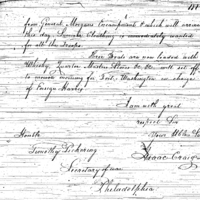 from General Morgans Encampment & which will arrive
this day Summer Cloathing is immediately wanted
for all the Troops
Three Boats are now loaded with
Whisky, Quarter Masters Stores &c. &c. will set off
tomorrow morning for Fort Washington in charge
of Ensign
I am with great
respect Sir
Your Hble Se
Honble
Isaac Craig
Timothy Pickering
Secretary of war
Philadelphia